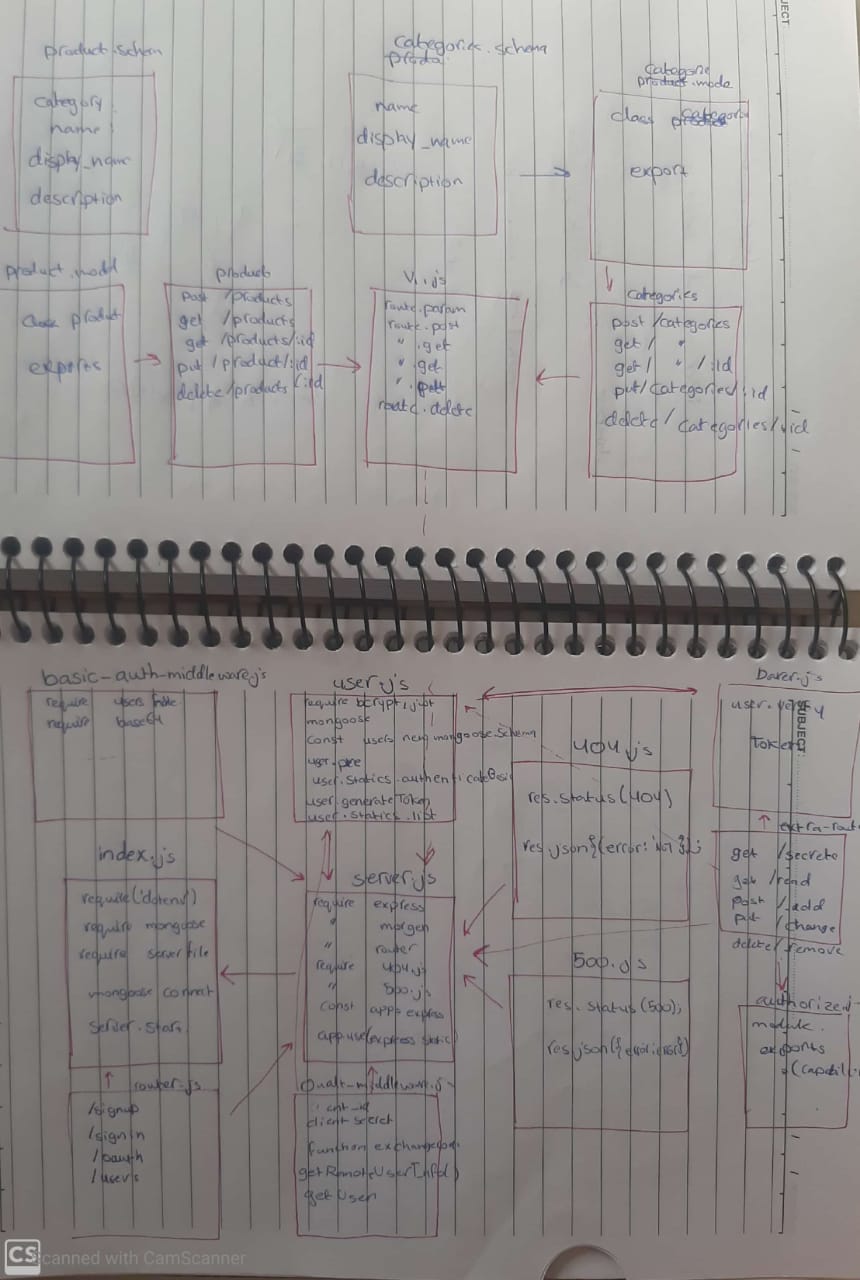 SUBJECT
product.schem
category
name
display_name
description
categorie.schema
name
display_name
description
categorie
product.mode
class category
export
product.modl
product
exports
product
post /products
get /products
get /products/:id
put /product/:id
delete/products/:id
V1.js
route.param
route.post
" .get
" .get
" .
route.delete
categories
post /categories
get / "
get / " /:id
put/categories/:id
delete/categories/:id
basic-auth-middleware.js
require users
require base64
user.js
require bcrypt, jwt
mongoose
const users new mongoose.schema
user.pre
user.statics.authenticateBasic
user.generateToken
user.statics.list
404.js
res.status(404)
res.json
barer.js
user.
Token
SUBJECT:
extra-rout
get /secrete
get /read
post /add
put /change
delete/remove
index.js
require('dotenv')
require mongoose
require server file
mongoose connect
server.start
server.js
require express
" morgen
" router
require 404.js
" 500.js
const app = express
app.use(express static)
500.js
res.status(500);
res.json({error:error})
authorize.j
module.
exports
(capabili
router.js
/signup
/signin
/oauth
/users
client secret
function
getRemoteUserInfo()
getUser
CS Scanned with CamScanner